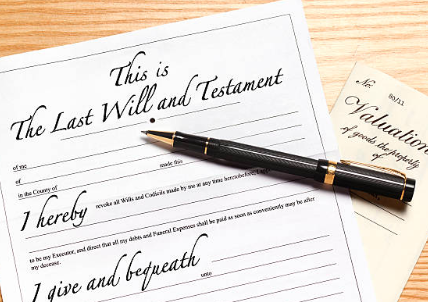 This is
The Last Will and Testament
of me
of made this
in the County of
I hereby revoke all Wills and Codicils made by me at any time heretofore
to be my Executor, and direct that all my debts and Funeral Expenses shall be paid as soon as conveniently may be after
my decease.
I give and bequeath unto
No:
Valuation
of goods the property
of